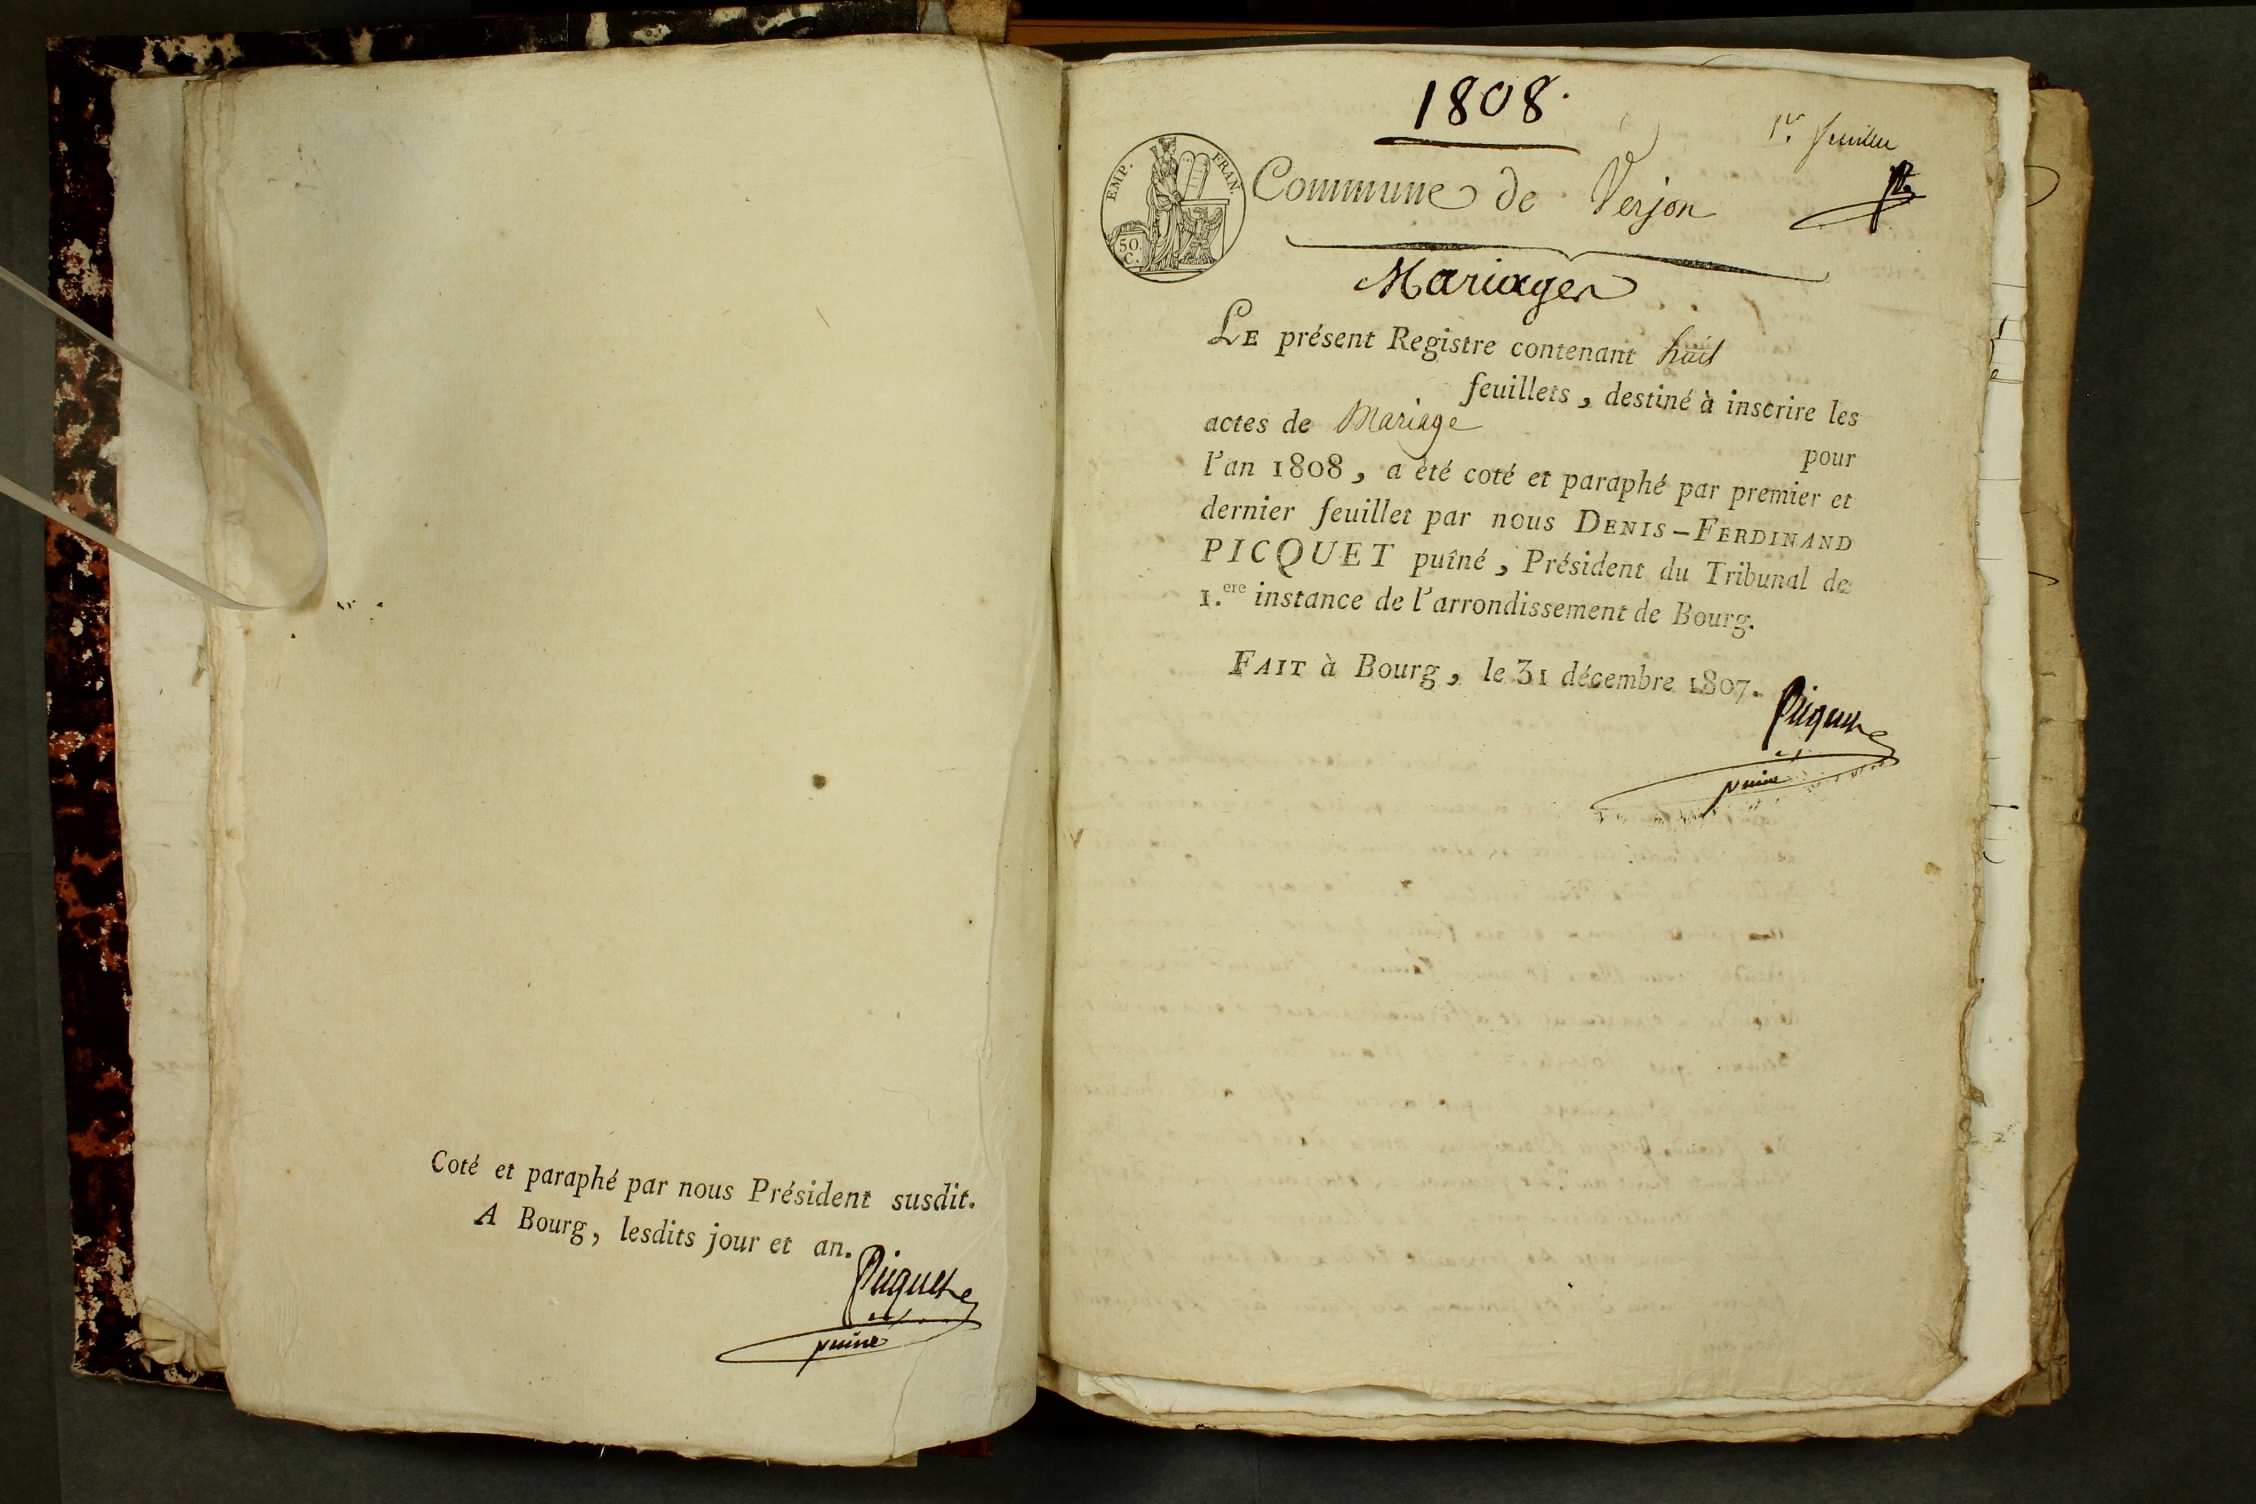 Coté et paraphé par nous Président susdit.
A Bourg, lesdits jour et an.
Picquet
puiné
1808.
1er feuillet
EMP. FRAN.
50.
C.
Commune de Verjon
Mariages
LE présent Registre contenant huit
feuillets, destiné à inscrire les
actes de Mariage
pour
l'an 1808, a été coté et paraphé par premier et
dernier feuillet par nous DENIS-FERDINAND
PICQUET puîné, Président du Tribunal de
1.ere instance de l'arrondissement de Bourg.
FAIT à Bourg, le 31 décembre 1807.
Picquet
puiné